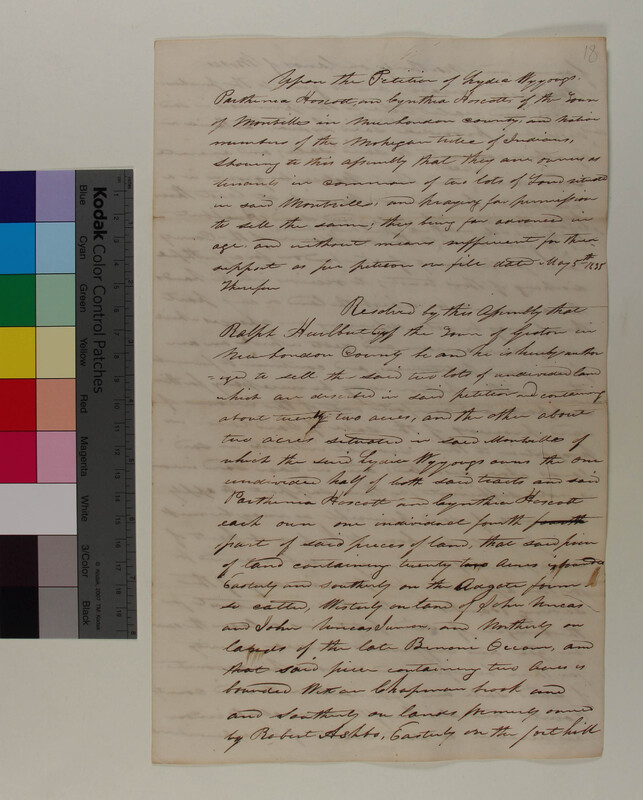 18
Upon the Petition of Lydia Wyyougs
Parthenia Hoscott and Cynthia Hoscott of the Town
of Montville in New London county, and native
members of the Mohegan tribe of Indians,
Showing to this assembly that they are owners as
tenants in common of two lots of Land situated
in said Montville; and praying for permission
to sell the same; they being far advanced in
age and without means sufficient for their
support as per petition on file dated May 5th 1835
Therefor
Resolved by this Assembly that
Ralph Hurlbut Esq of the Town of Groton in
New London County be and he is hereby author
=ized to sell the said two lots of undivided land
which are described in said petition containing
about twenty two acres, and the other about
two acres situated in said Montville of
which the said Lydia Wyyougs owns the one
undivided half of both said tracts and said
Parthenia Hoscott and Cynthia Hoscott
each own one individual fourth fourth
part of said pieces of land, that said piece
of land containing twenty two Acres is bounded
Easterly and Southerly on the Adgate farm
so called, Westerly on land of John Uncas
and John Uncas Junior, and Northerly on
lands of the late Benoni Occum, and
that said piece containing two Acres is
bounded West on Chapman brook and
and Southerly on lands formerly owned
by Robert Ashbo, Easterly on the fort hill
Kodak Color Control Patches
Blue
Cyan
Green
Yellow
Red
Magenta
White
3/Color
Black